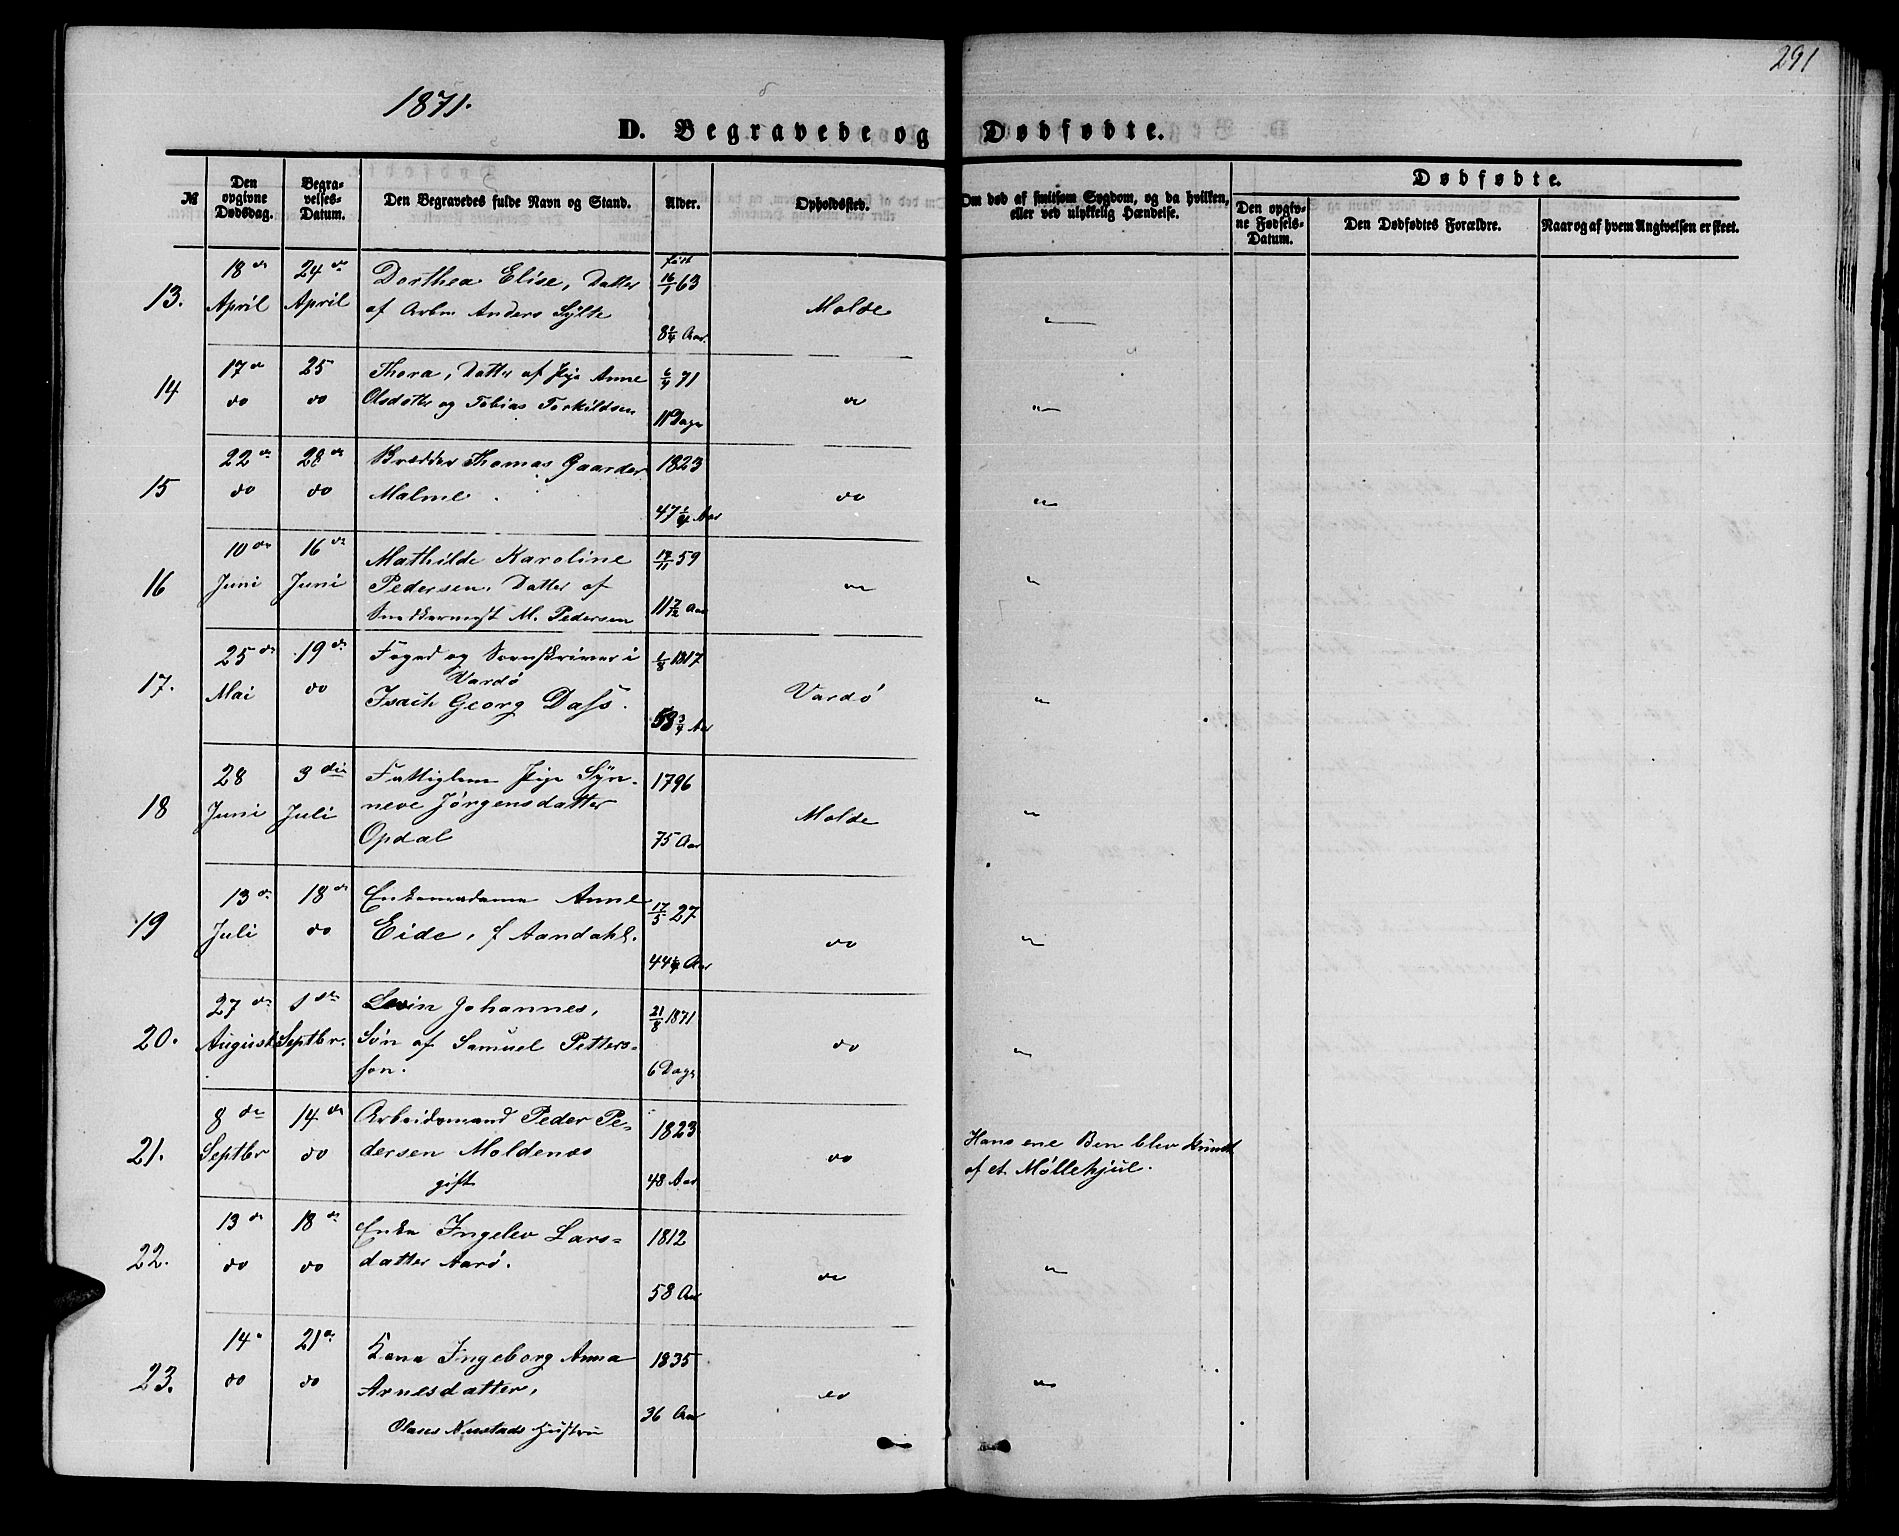 291
1871.
D. Begravede og Dødfødte.
№
Den opgivne Dødsdag.
Begra-velses-Datum.
Den Begravedes fulde Navn og Stand.
Alder.
Opholdssted.
Om død af smitsom Sygdom, og da hvilken, eller ved ulykkelig Hændelse.
Dødfødte.
Den opgiv-ne Fødsels-Datum.
Den Dødfødtes Forældre.
Naar og af hvem Angivelsen er skeet.
13. 18de April 24de April Dorthea Elise, Datter født 16/1 63 Molde "
af Arbm Anders Sylte 8 1/4 Aar
14 17de do 25 do Thora, Datter af Pige Anne 6/4 71 do "
Olsdatter og Tobias Torkildsen 11 Dage
15 22de do 28de do Thomas Gaarder 1823 do "
Malme. 47 1/4 Aar
16 10de Juni 16de Juni Mathilde Karoline 17/11 59 do "
Pedersen, Datter af
Snedkermest M. Pedersen 11 7/12 Aar
17. 25de Mai 19de do Foged og Sorenskriver i 1/8 1817 Vardø "
Vardø
Isach Georg Dass. 53 3/4 Aar
18 28 Juni 3die Juli Fattiglem Pige Syn- 1796 Molde "
neve Jørgensdatter
Opdal 75 Aar
19 13de Juli 18de do Enkemadame Anne 17/3 27 do "
Eide, f Aandahl. 44 1/4 Aar
20. 27de August 1ste Septbr. Levin Johannes, 21/8 1871 do "
Søn af Samuel Petters-
son. 6 Dage
21. 8de Septbr 14de do Arbeidsmand Peder Pe- 1823 do Hans ene Ben blev knust
dersen Moldenæs af et Møllehjul.
gift 48 Aar
22. 13de do 18de do Enke Ingelev Lars- 1812 do "
datter Aarø. 58 Aar
23. 14de do 21de do Kone Ingeborg Anna 1835 do "
Arnesdatter,
Olaus Nerstads Hustru 36 Aar